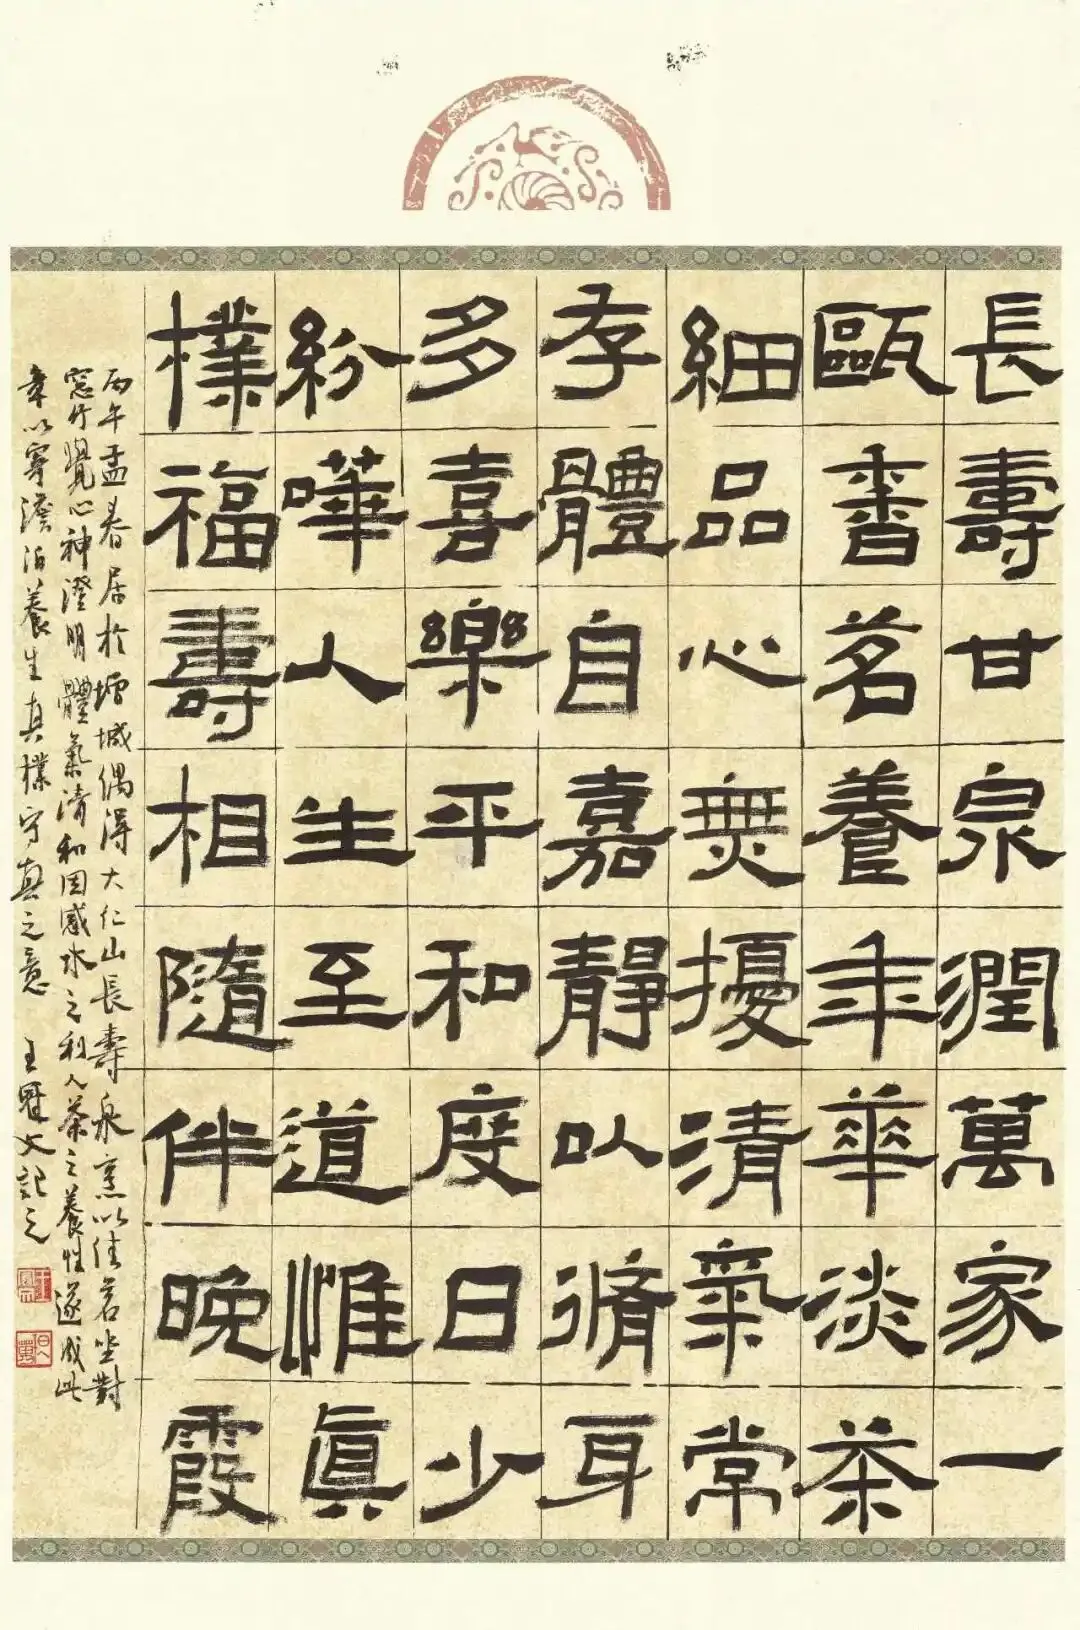 長壽甘泉潤萬家一
甌香茗養年華淡茶
細品心無擾清氣常
存體自嘉靜以脩身
多喜樂平和度日少
紛嘩人生至道惟真
樸福壽相隨伴晚霞
丙午孟春居於增城偶得大仁山長壽泉烹以佳茗坐對
窓竹覺心神澄明體氣清和因感水之利人茶之養性遂成此
章以寄淡泊養生真樸守真之意 王冠文記之